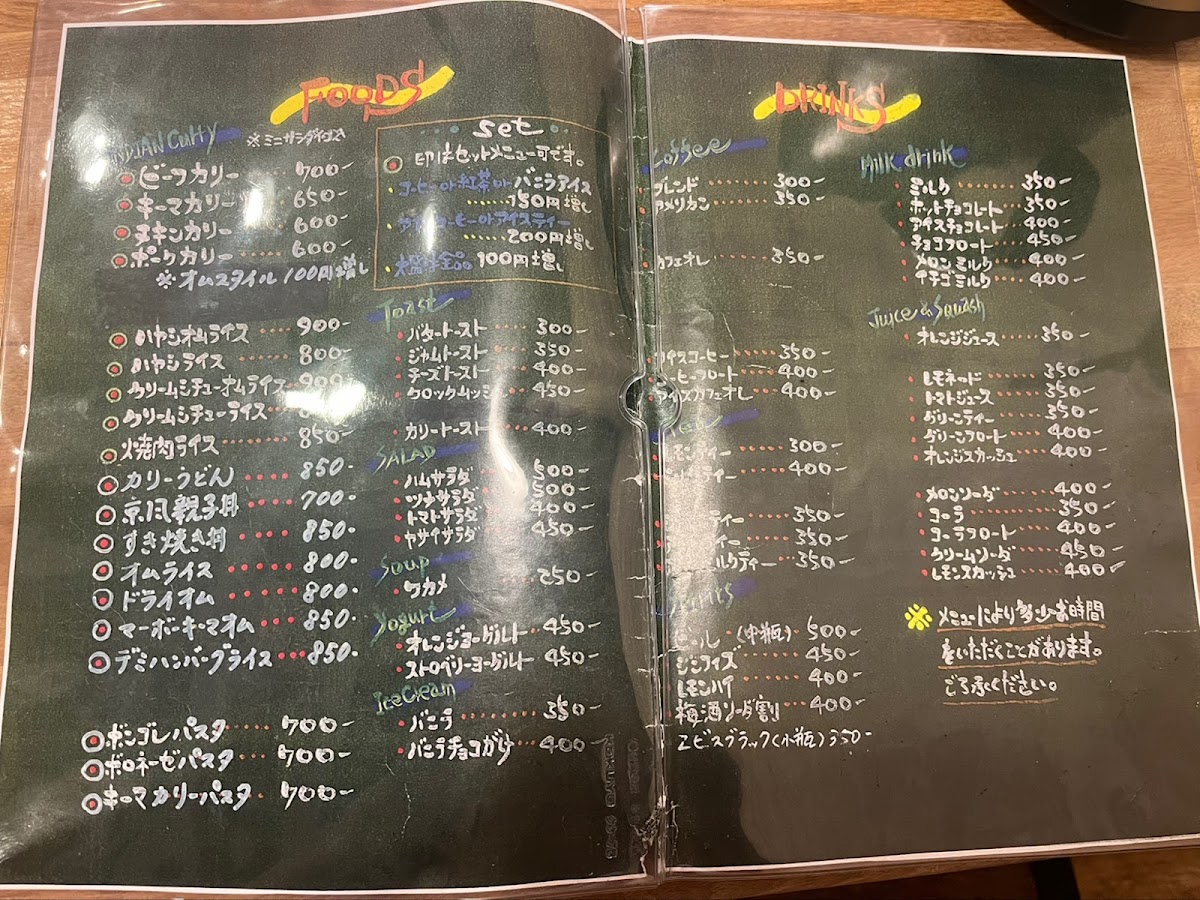 FOODS
INDIAN Curry ※ミニサラダイオスキ
ビーフカリー 700-
キーマカリー 650-
チキンカリー 600-
ポークカリー 600-
※オムスタイル 100円増し
ハヤシオムライス 900-
ハヤシライス 800-
クリームシチューオムライス 900-
クリームシチューライス
焼肉ライス 850-
カリーうどん 850-
京風親子丼 700-
すき焼き丼 850-
オムライス 800-
ドライオム 800-
マーボーキーマオム 850-
デミハンバーグライス 850-
ボンゴレパスタ 700-
ボロネーゼパスタ 700-
キーマカリーパスタ 700-
set
◎印はセットメニュー可です。
コーヒーor紅茶orバニラアイス
150円増し
アイスコーヒーorアイスティー
200円増し
大盛全品 100円増し
Toast
バタートースト 300-
ジャムトースト 350-
チーズトースト 400-
クロックムッシュ 450-
カリートースト 400-
SALAD
ハムサラダ 500-
ツナサラダ 500-
トマトサラダ 400-
ヤサイサラダ 450-
Soup
ワカメ 250-
Yogurt
オレンジヨーグルト 450-
ストロベリーヨーグルト 450-
Ice Cream
バニラ 350-
バニラチョコがけ 400-
DRINKS
Coffee
ブレンド 300-
アメリカン 350-
カフェオレ 350-
アイスコーヒー 350-
コーヒーフロート 400-
アイスカフェオレ 400-
Tea
レモンティー 300-
ティー 400-
ティー 350-
ティー 350-
ミルクティー 350-
Spirits
ビール(中瓶) 500-
ジンフィズ 450-
レモンハイ 400-
梅酒ソーダ割 400-
エビスブラック(小瓶) 350-
Milk drink
ミルク 350-
ホットチョコレート 350-
アイスチョコレート 400-
チョコフロート 450-
メロンミルク 400-
イチゴミルク 400-
Juice & Squash
オレンジジュース 350-
レモネード 350-
トマトジュース 350-
グリーンティー 350-
グリーンフロート 400-
オレンジスカッシュ 400-
メロンソーダ 400-
コーラ 350-
コーラフロート 400-
クリームソーダ 450-
レモンスカッシュ 400-
※メニューにより多少お時間
をいただくことがあります。
ご了承ください。